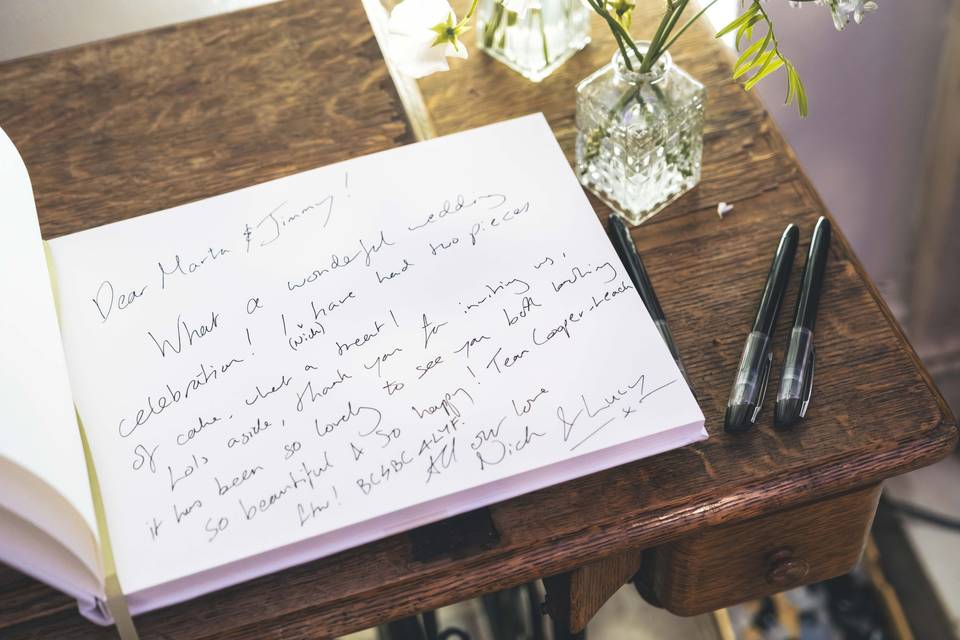 Dear Marta & Jimmy!
What a wonderful wedding
celebration! I (Nick) have had two pieces
of cake, what a treat!
Lols aside, thank you for inviting us,
it has been so lovely to see you both looking
so beautiful & so happy! Team Cooper-beach
ftw! BC&BC 4LYF!
All our love
Nick & Lucy x